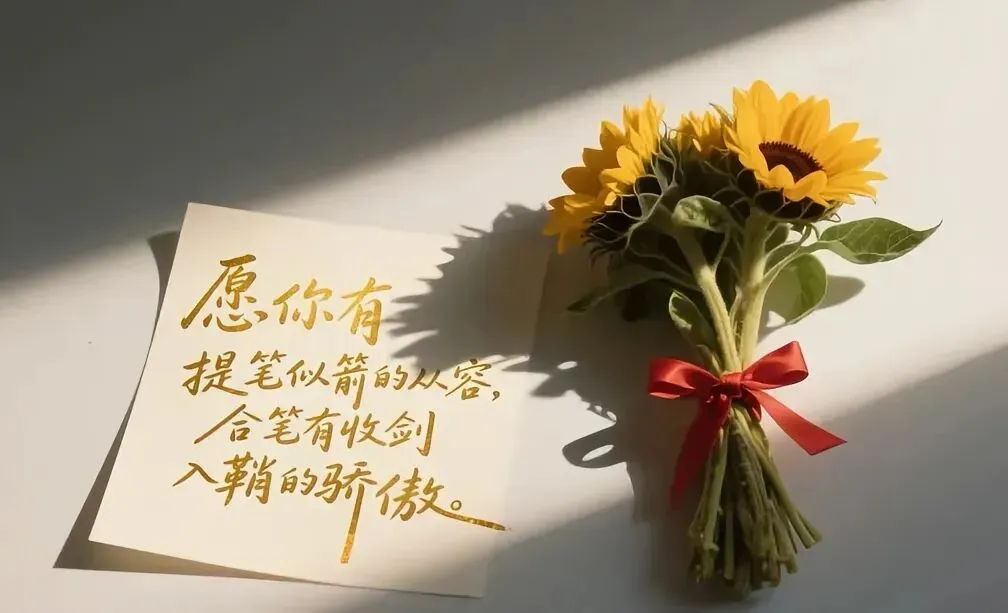 愿你有
提笔似箭的从容，
合笔有收剑
入鞘的骄傲。